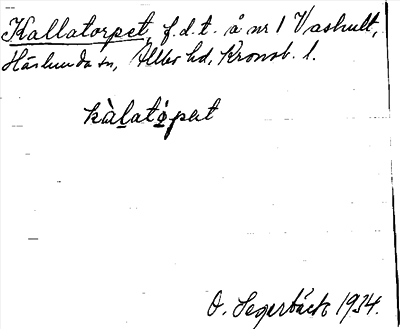 Kallatorpet, f.d.t. å nr 1 Vashult,
Härlunda sn, Allbo hd, Kronob. l.
kàlatǫ́pet
O. Segerbäck 1934.